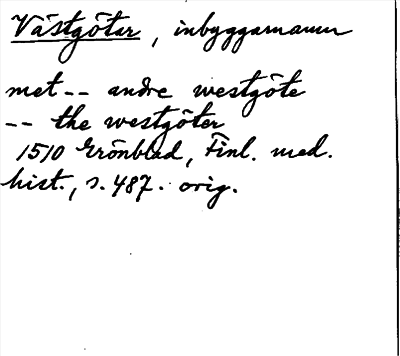 Västgötar, inbyggarnamn
met -- andre westgöte
-- the westgöter
1510 Grönblad, Finl. med.
hist., s. 487. orig.